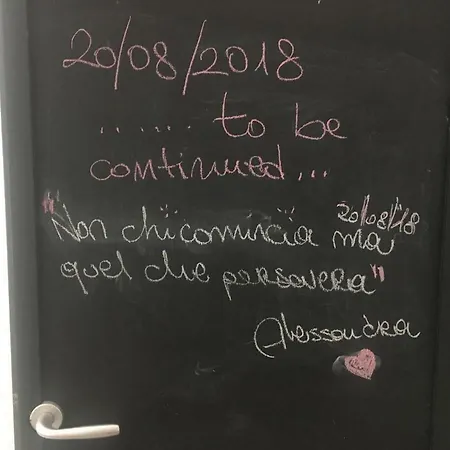 20/08/2018
....... to be
continued...
20/08/18
"Non chi comincia ma
quel che persevera"
Alessandra